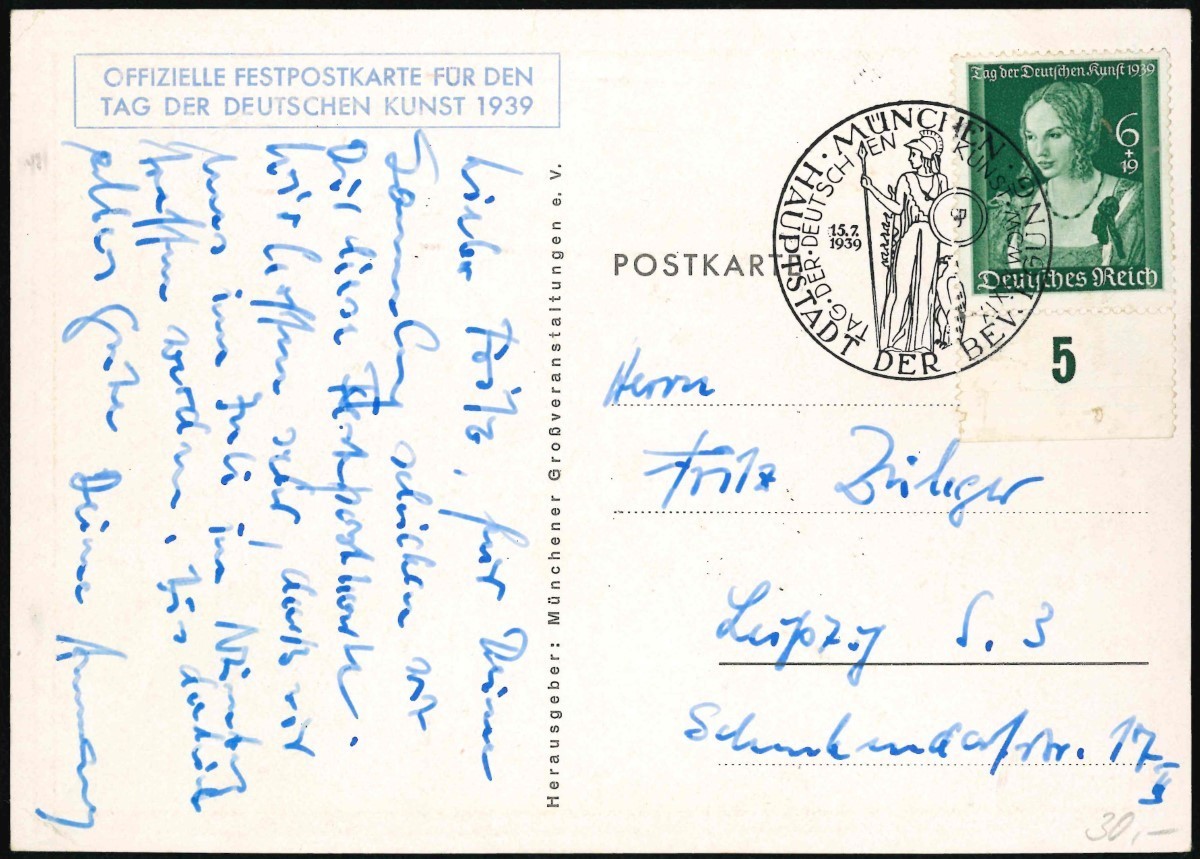 OFFIZIELLE FESTPOSTKARTE FÜR DEN
TAG DER DEUTSCHEN KUNST 1939
Lieber Fritz, für Deine
Sammlung schicken wir
Dir diese Festpostkarte.
Wir hoffen sehr, dass wir
uns im Juli in
treffen werden. Bis dahin
alles Gute Deine
Herausgeber: Münchener Großveranstaltungen e. V.
POSTKARTE
MÜNCHEN · HAUPTSTADT DER BEWEGUNG
TAG · DER · DEUTSCHEN KUNST
15.7.
1939
Tag der Deutschen Kunst 1939
6
+
19
Deutsches Reich
5
Herrn
Fritz
Leipzig S. 3
Schenkendorfstr. 17
30,–